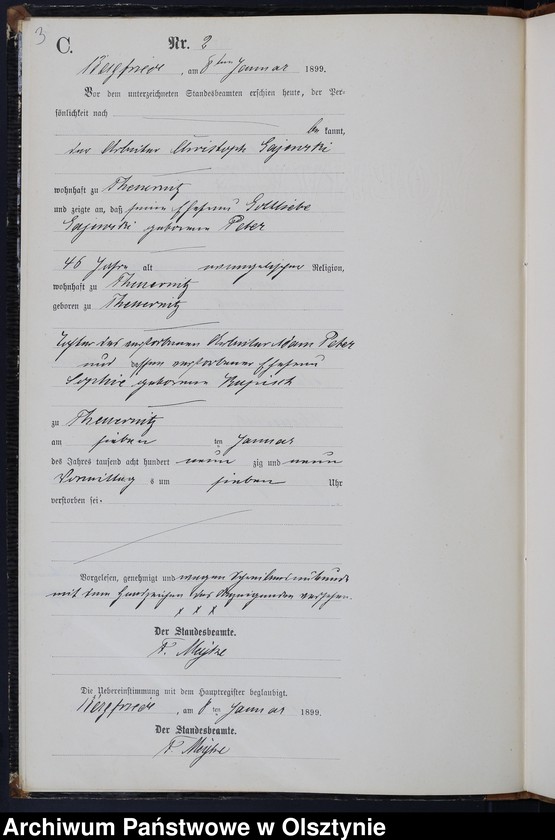 3
C.
Nr. 2
Bergfriede, am 8ten Januar 1899.
Vor dem unterzeichneten Standesbeamten erschien heute, der Per-
sönlichkeit nach
be kannt,
der Arbeiter Christoph Gajewski
wohnhaft zu Theuernitz
und zeigte an, daß seine Ehefrau Gottliebe
Gajewski geborene Peter
46 Jahre alt evangelischer Religion,
wohnhaft zu Theuernitz
geboren zu Theuernitz
Tochter des verstorbenen Arbeiter Adam Peter
und dessen verstorbener Ehefrau
Sophie geborene
zu Theuernitz
am sieben ten Januar
des Jahres tausend acht hundert neun zig und neun
Vormittag s um sieben Uhr
verstorben sei.
Vorgelesen, genehmigt und wegen Schreibensunkunde
mit dem Handzeichen des Anzeigenden versehen.
x x x
Der Standesbeamte.
F.
Die Uebereinstimmung mit dem Hauptregister beglaubigt.
Bergfriede, am 8ten Januar 1899.
Der Standesbeamte.
F.
Archiwum Państwowe w Olsztynie